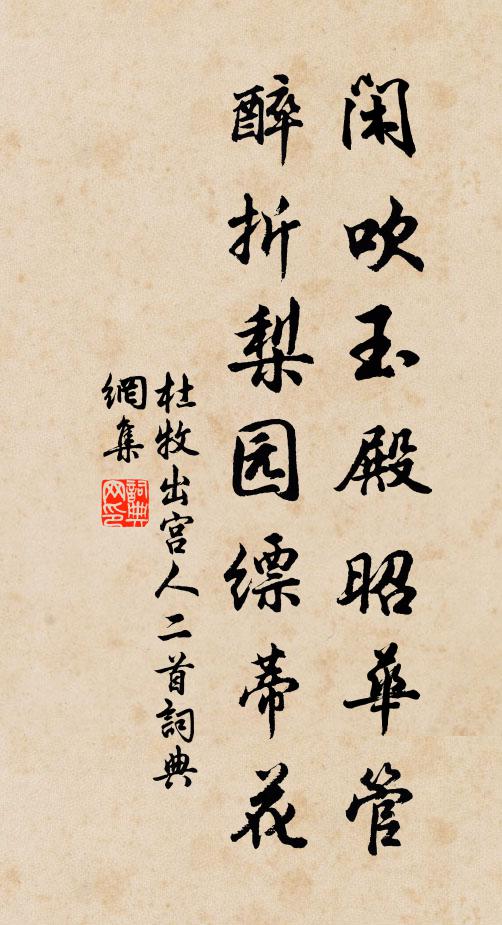 闲吹玉殿昭华管
醉折梨园缥蒂花
杜牧出宫人二首詞典
網集
詞典
网印